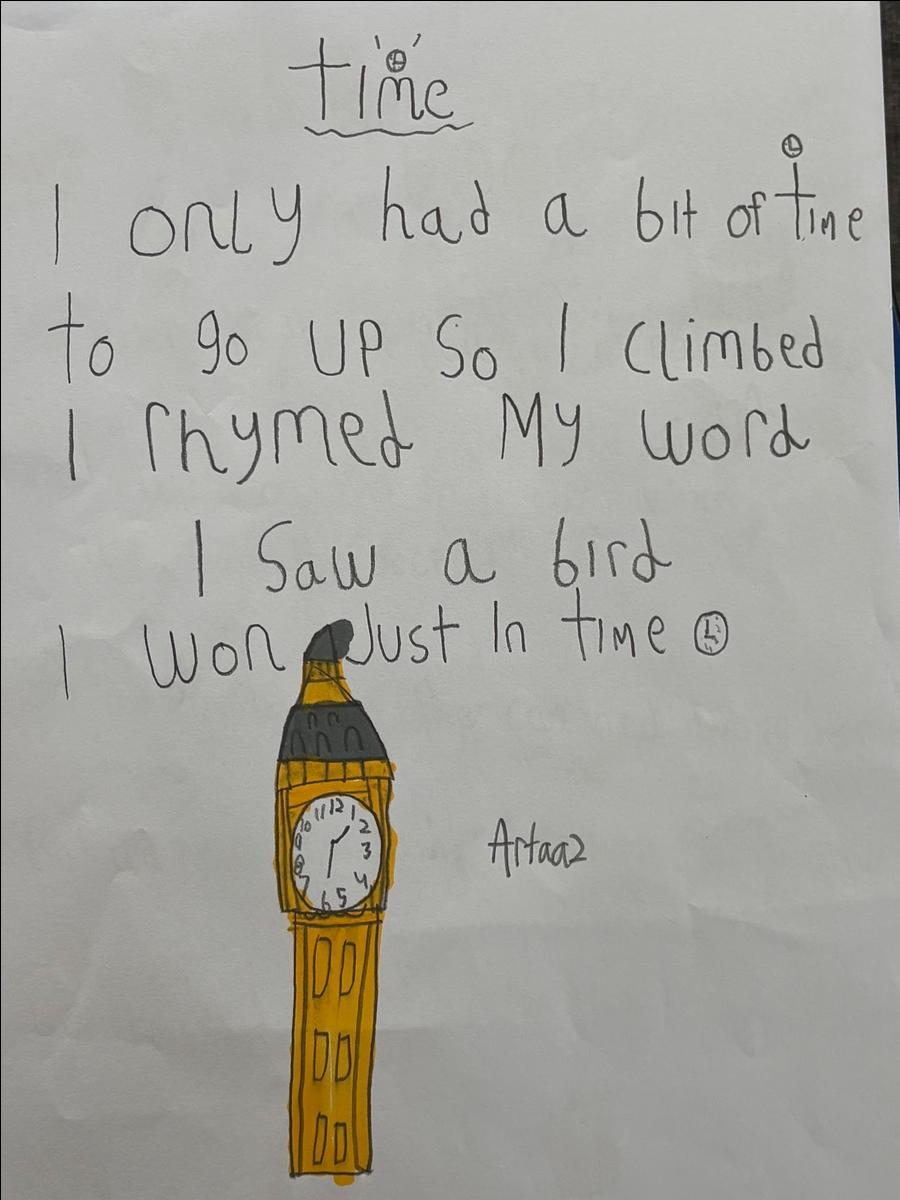 time
I only had a bit of time
to go up so I climbed
I rhymed My word
I saw a bird
I won Just In time
11 12 1
10 2
9 3
8 4
7 6 5
Artaaz